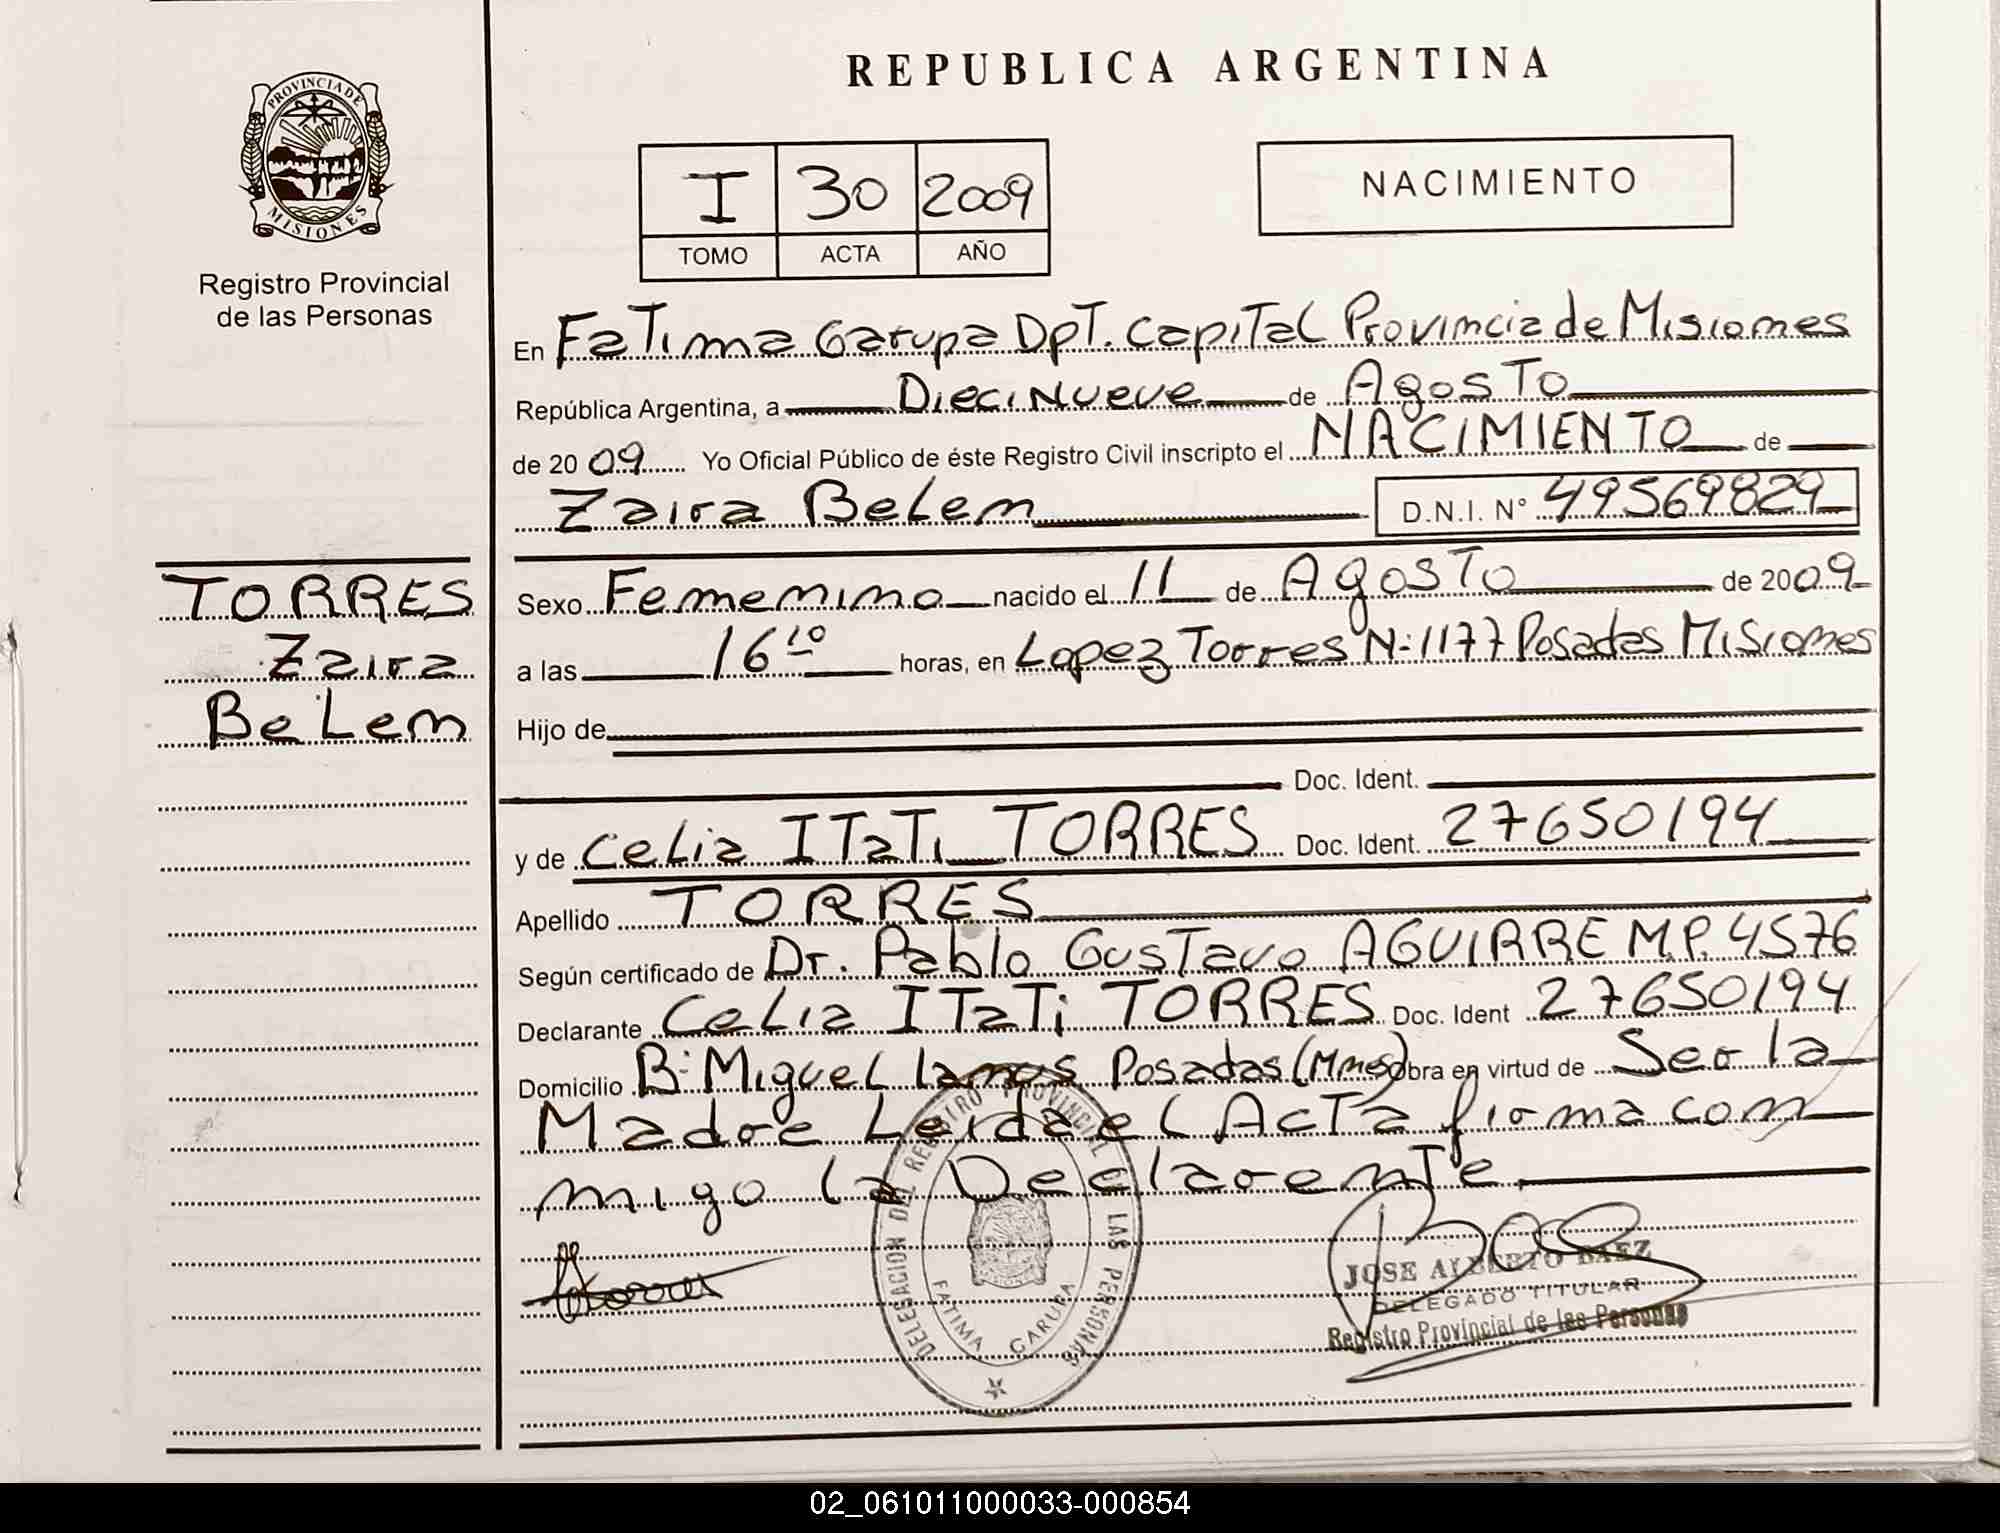 REPUBLICA ARGENTINA
PROVINCIA DE
MISIONES
Registro Provincial
de las Personas
I 30 2009
TOMO ACTA AÑO
NACIMIENTO
En Fatima Garupa Dpt. Capital Provincia de Misiones
República Argentina, a Diecinueve de Agosto
de 2009 Yo Oficial Público de éste Registro Civil inscripto el NACIMIENTO de
Zaira Belem D.N.I. N° 49569829
TORRES
Zaira
Belem
Sexo Femenino nacido el 11 de Agosto de 2009
a las 16 10 horas, en Lopez Torres N: 1177 Posadas Misiones
Hijo de
Doc. Ident.
y de Celia ITaTi TORRES Doc. Ident. 27650194
Apellido TORRES
Según certificado de Dr. Pablo Gustavo AGUIRRE M.P. 4576
Declarante Celia ITaTi TORRES Doc. Ident 27650194
Domicilio B: Miguel lanus Posadas (Mnes) Obra en virtud de Ser la
Madre Leida el Acta firma con
migo la Declarante
DELEGACION DEL REGISTRO PROVINCIAL DE LAS PERSONAS
FATIMA GARUPA
JOSE ALBERTO BAEZ
DELEGADO TITULAR
Registro Provincial de las Personas
02_061011000033-000854